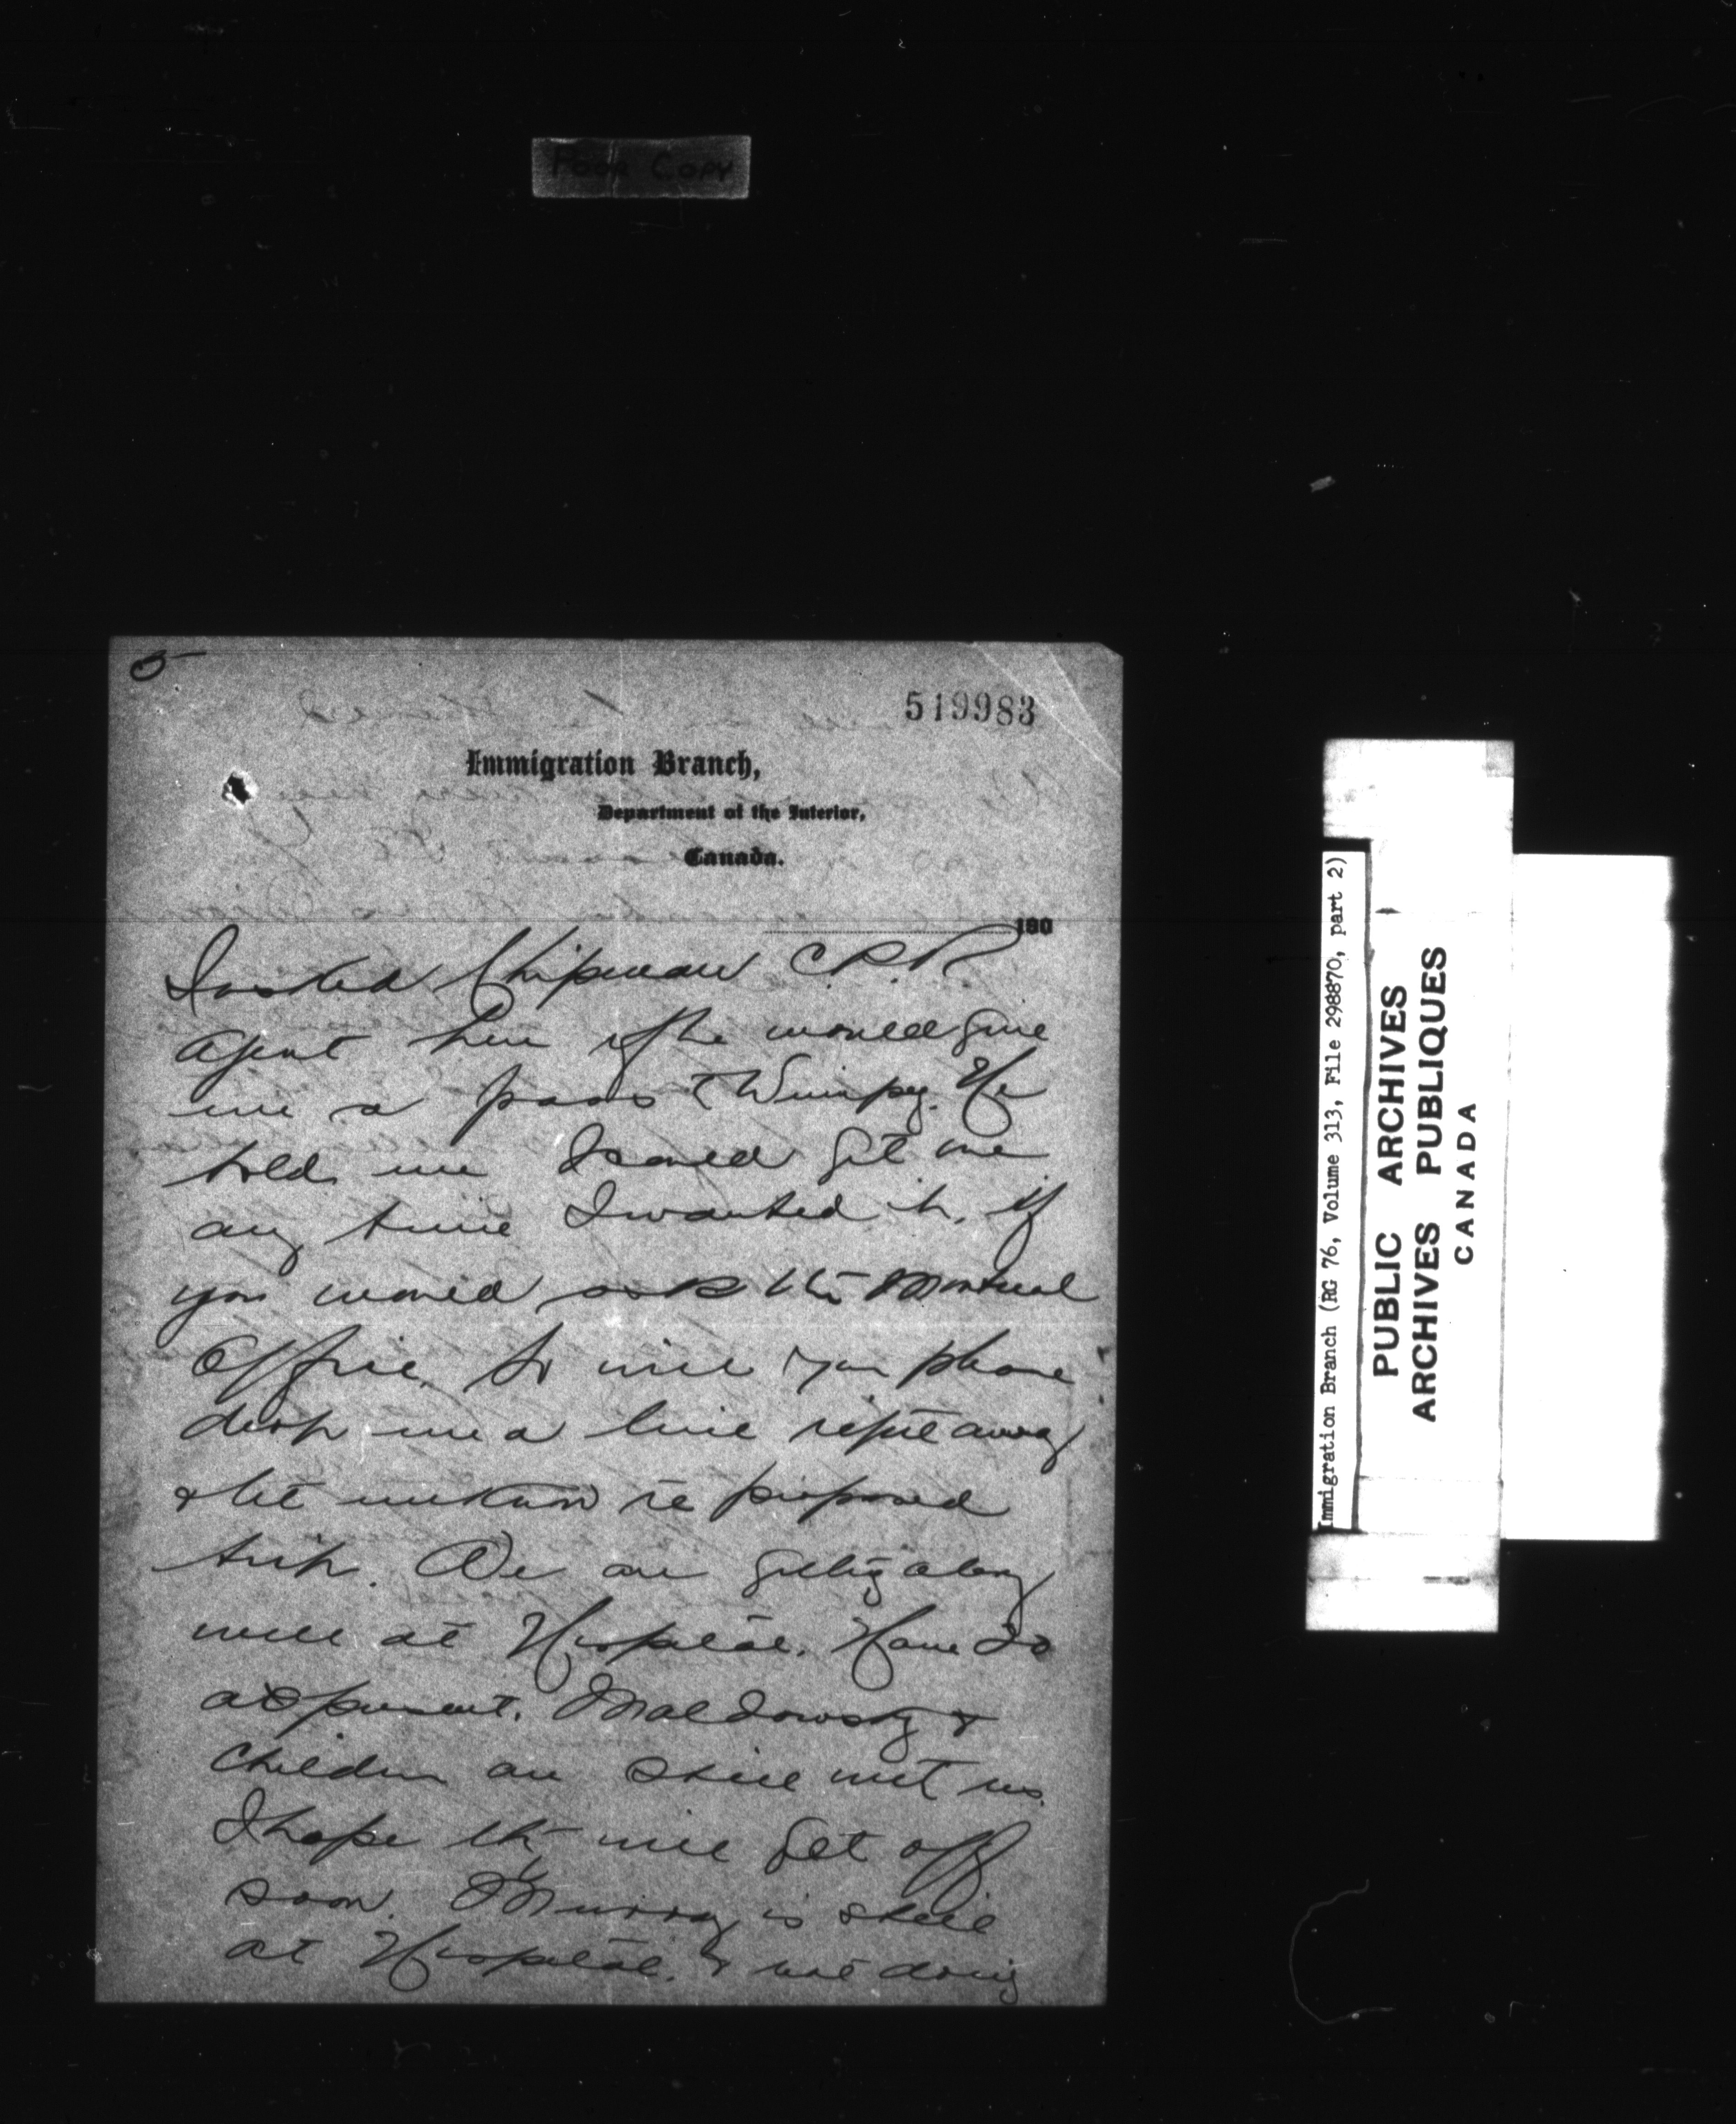 Poor Copy
5
519983
Immigration Branch,
Department of the Interior,
Canada.
190
I asked Chipman C.P.R
Agent here if he would give
me a pass to Winipeg. He
told me I could get one
any time I wanted it, if
you would ask the Montreal
Office, so will you please
drop me a line right away
& let me know re proposed
trip. We are getting along
well at Hospital. Have 20
at present. Maldowsky &
children are still with us.
I hope they will get off
soon. Murray is still
at Hospital. & not doing
Immigration Branch (RG 76, Volume 313, File 298870, part 2)
PUBLIC ARCHIVES
ARCHIVES PUBLIQUES
CANADA